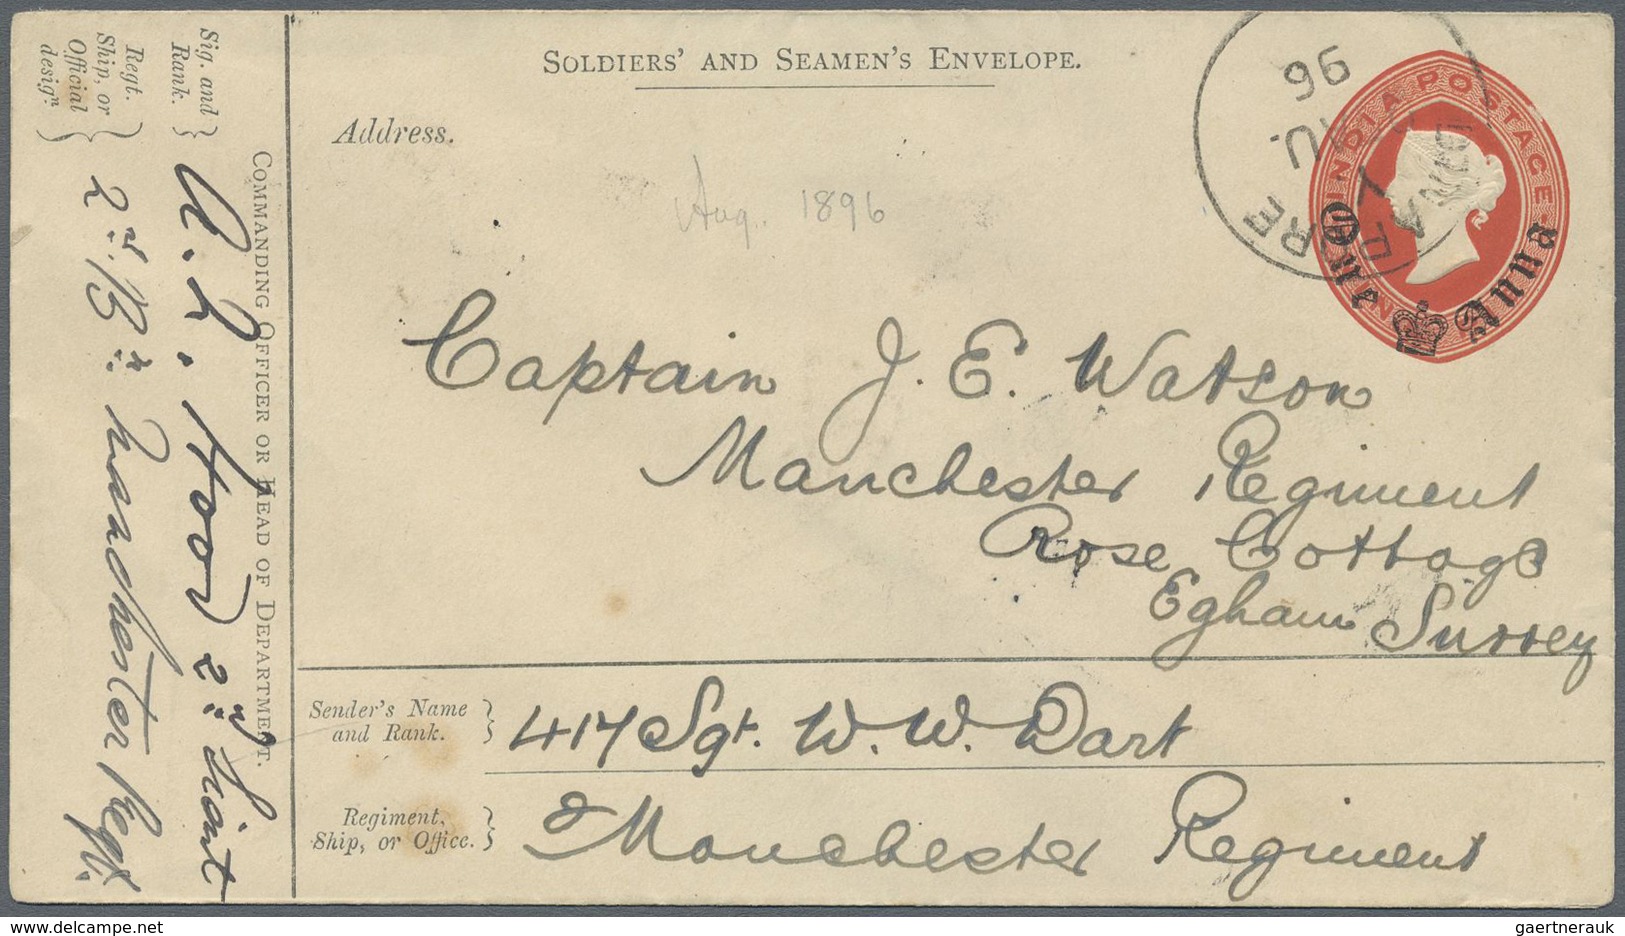 SOLDIERS' AND SEAMEN'S ENVELOPE.
Address.
Aug. 1896
Captain J. E. Watson
Manchester Regiment
Rose Cottage
Egham Surrey
Sender's Name
and Rank.
417 Sgt. W. W. Dart
Regiment,
Ship, or Office.
Manchester Regiment
COMMANDING OFFICER OR HEAD OF DEPARTMENT.
Sig. and
Rank.
A. L.
2nd Lieut
Regt.
Ship, or
Official
design.
2nd Bn: Manchester Regt.
INDIA POSTAGE.
One
Anna
96
gaertnerauk